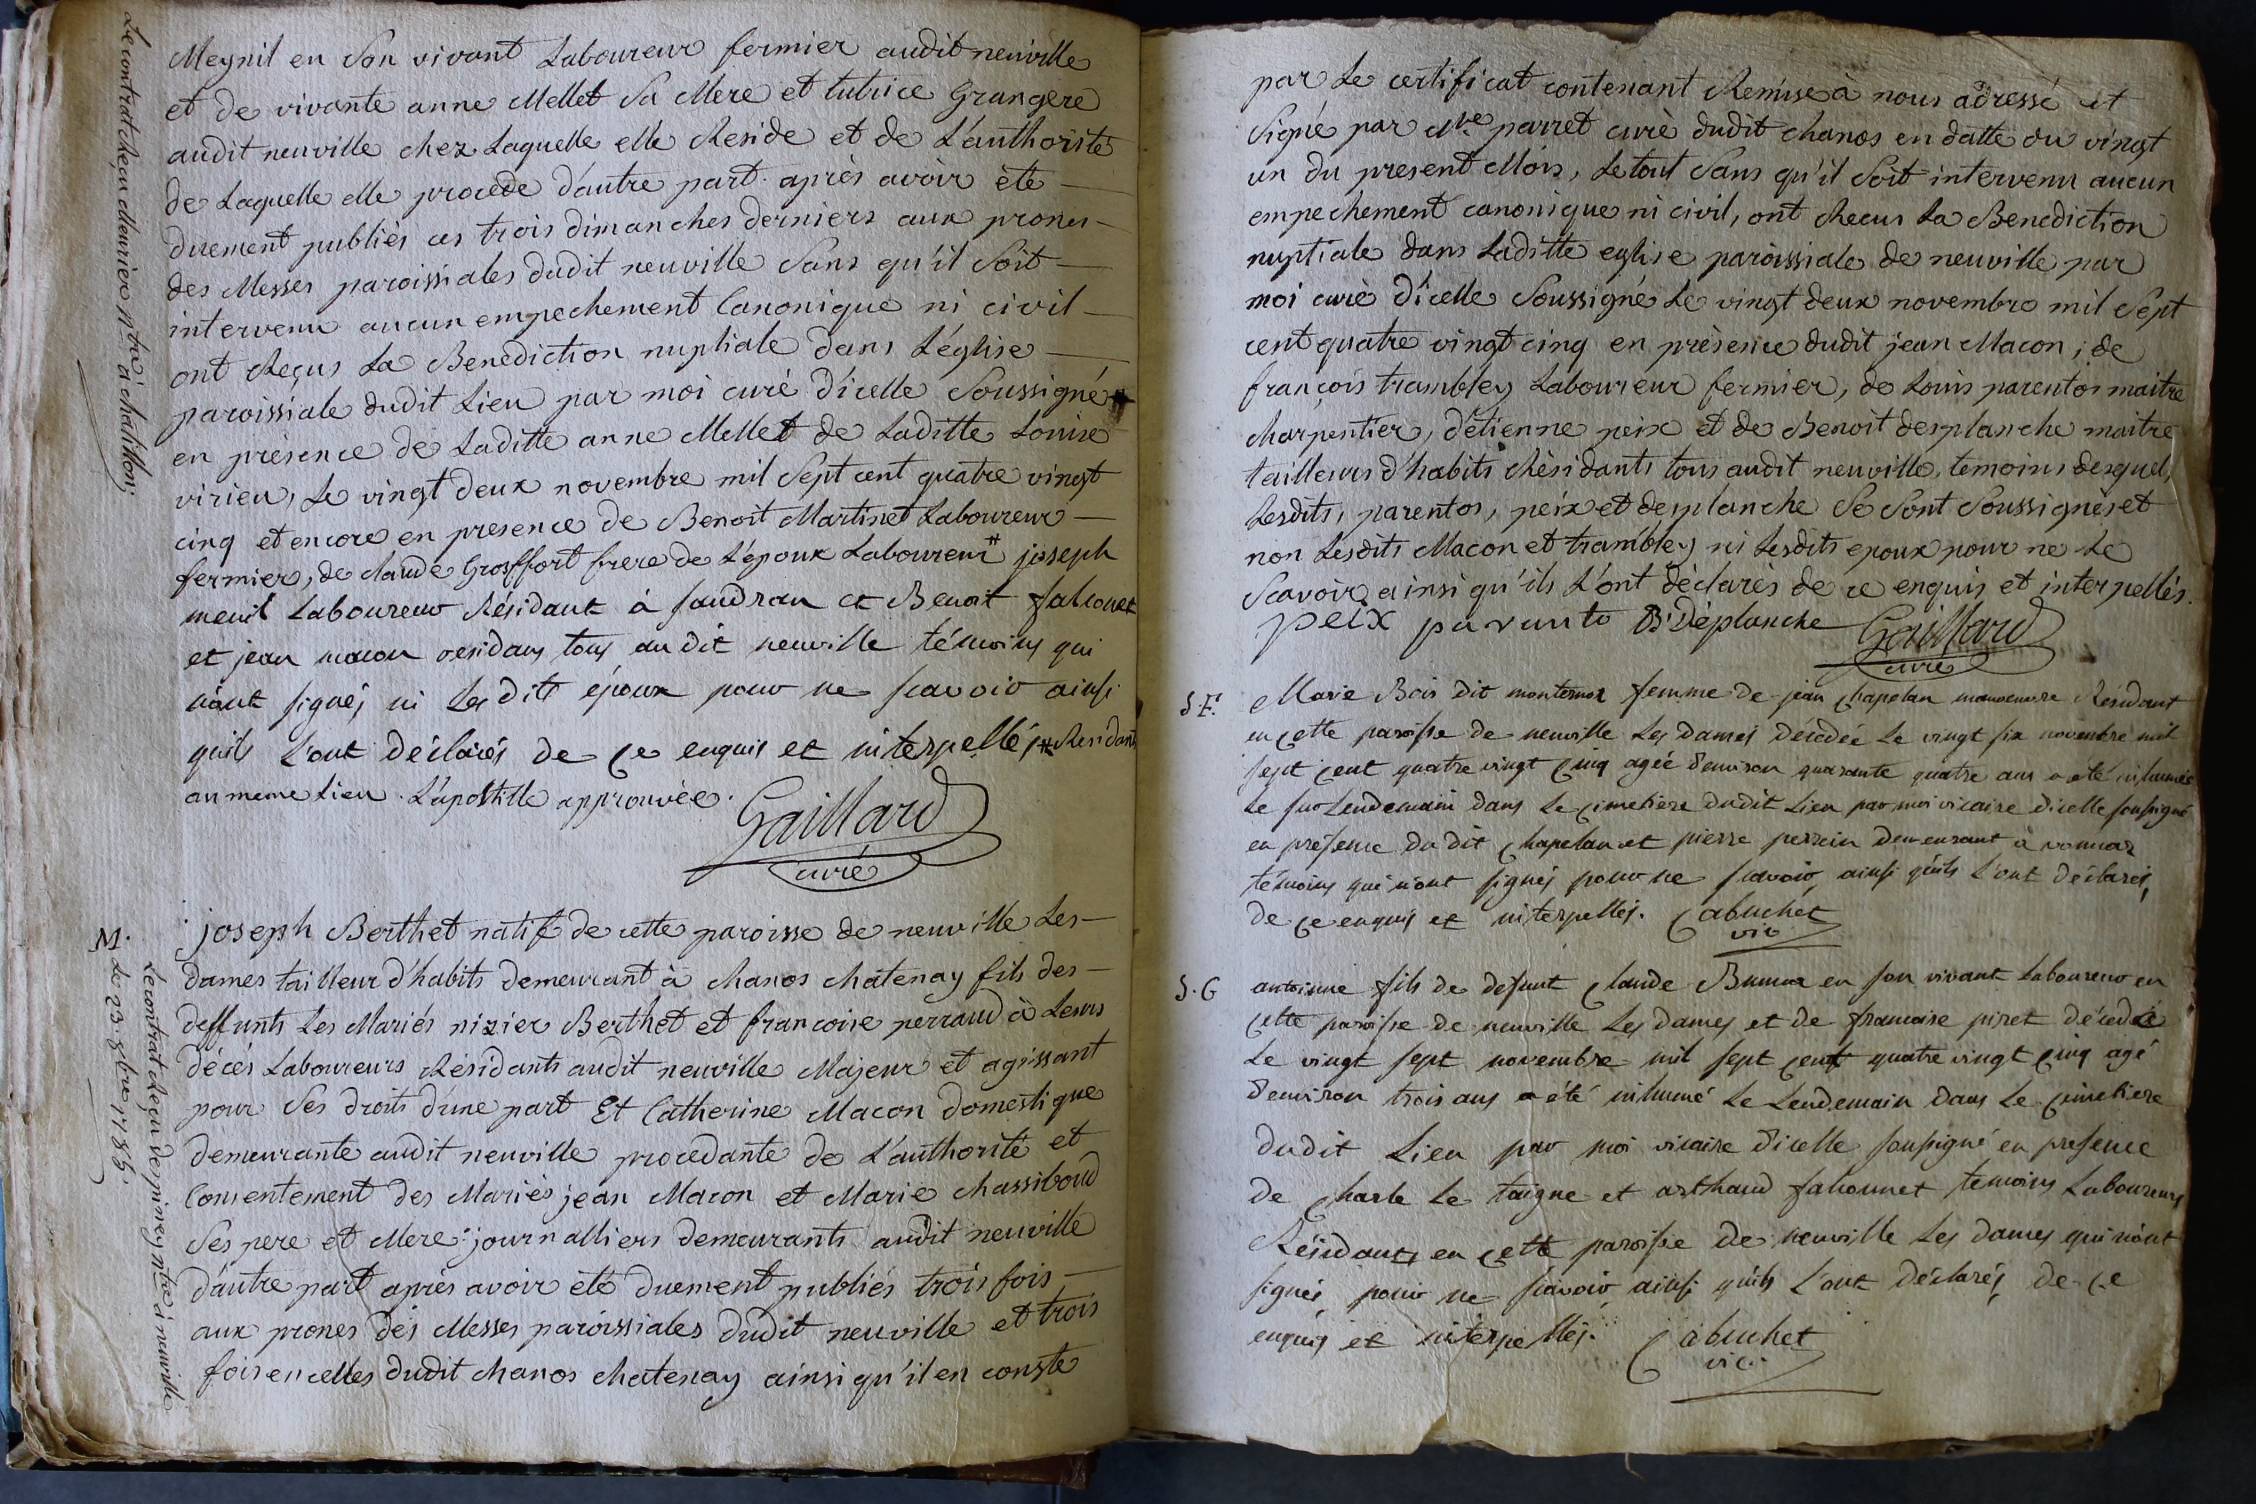 Le contrat Reçu Meuriere ntre à chatillon;
Meynil en son vivant Laboureur fermier audit neuville
et de vivante anne Mellet sa Mere et tutrice Grangere
audit neuville chez Laquelle elle Reside et de L'authorité
de Laquelle elle procede d'autre part. après avoir été
duement publiés ces trois dimanches derniers aux prones
des Messes paroissiales dudit neuville sans qu'il soit
intervenu aucun empechement Canonique ni civil
ont Reçus La Benediction nuptiale dans L'église
paroissiale dudit Lieu par moi curé d'icelle soussigné
en présence de Laditte anne Mellet de Laditte Louise
virieu, Le vingt deux novembre mil sept cent quatre vingt
cinq et encore en presence de Benoit Martinet Laboureur
fermier, de claude Grosffort frere de L'époux Laboureur # joseph
menil Laboureur Résidant à sandran et Benoit falconet
et jean macon residans tous au dit neuville témoins qui
n'ont signés ni Les dits époux pour ne scavoir ainsi
qu'ils L'ont déclarés de ce enquis et interpellés # Residant
au meme Lieu. L'apostille approuvée.
Gaillard
curé
M.
Le contrat Reçu despiney ntre à neuville
Le 23. 8bre 1785.
joseph Berthet natif de cette paroisse de neuville Les
dames tailleur d'habits demeurant à chanos chatenay fils des
deffunts Les Mariés nizier Berthet et francoise perraud à Leurs
décés Laboureurs Résidants audit neuville Majeur et agissant
pour ses droits d'une part Et Catherine Macon domestique
demeurante audit neuville procedante de L'authorité et
Consentement des Mariés jean Macon et Marie chassiboud
ses pere et Mere journalliers demeurants audit neuville
d'autre part après avoir été duement publiés trois fois
aux prones des Messes paroissiales dudit neuville et trois
fois en celles dudit chanos chatenay ainsi qu'il en conste
par Le certificat contenant Remise à nous adressé et
signé par Mre parret curé dudit chanos en datte du vingt
un du present Mois, Le tout sans qu'il soit intervenu aucun
empechement canonique ni civil, ont Recus La Benediction
nuptiale dans Laditte eglise paroissiale de neuville par
moi curé d'icelle soussigné Le vingt deux novembre mil sept
cent quatre vingt cinq en présence dudit jean Macon, de
françois trambley Laboureur fermier, de Louis parentos maitre
charpentier, d'étienne peix et de Benoit desplanche maitre
tailleurs d'habits Résidants tous audit neuville, temoins desquels
Lesdits, parentos, peix et desplanche se sont soussignés et
non Lesdits Macon et trambley ni Lesdits epoux pour ne Le
scavoir ainsi qu'ils L'ont déclarés de ce enquis et interpellés.
peix paranto B. Déplanche Gaillard
curé
S.F.
Marie Bois dit monternoz femme de jean chapelan manoeuvre Résidant
en cette paroisse de neuville Les dames décédée Le vingt six novembre mil
sept cent quatre vingt cinq agée d'environ quarante quatre ans a été inhumée
Le sur Lendemain dans Le cimetiere dudit Lieu par moi vicaire d'icelle soussigné
en présence du dit chapelan et pierre perrein demeurant à vonnaz
témoins qui n'ont signés pour ne scavoir, ainsi qu'ils L'ont déclarés,
de ce enquis et interpellés. Cabuchet
vic
S.G
antoinne fils de defunt claude Bunoz en son vivant Laboureur en
cette paroisse de neuville Les dames et de francoise piret décédé
Le vingt sept novembre mil sept cent quatre vingt cinq agé
d'environ trois ans a été inhumé Le Lendemain dans Le cimetiere
dudit Lieu par moi vicaire d'icelle soussigné en presence
de charle Le taigne et arthaud falconnet temoins Laboureurs
Résidants en cette paroisse de neuville Les dames qui n'ont
signés pour ne scavoir ainsi qu'ils L'ont déclarés de ce
enquis et interpellés. Cabuchet
vic.